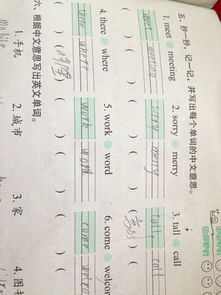 五、抄一抄,记一记,并写出每个单词的中文意思。
1. meet meeting 2. sorry merry 3. tall call
meet meeting sorry merry tall call
( ) ( ) ( ) ( ) ( ) ( )
4. there where 5. work word 6. come welcom
there where work word come welco
( ) ( ) ( ) ( ) ( ) (
六、根据中文意思写出英文单词。
1. 手机 2. 城市 3. 家 4. 图书